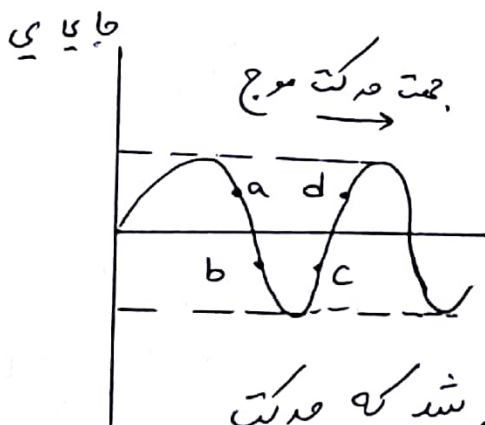 جا بجا یی
جهت حرکت موج
a d
b c
شد که حرکت